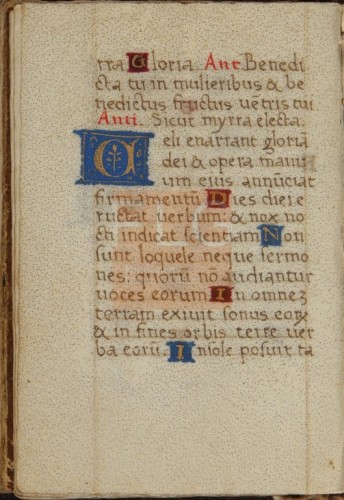 rra Gloria Ant Benedi
cta tu in mulieribus & be
nedictus fructus vētris tui
Anti. Sicut myrra electa.
Celi enarrant gloriā
dei & opera manu
um eius annūciat
firmamentū Dies diei e
ructat verbum: & nox no
cti indicat scientiam Non
sunt loquele neque sermo
nes: quorū nō audiantur
voces eorum In omnez
terram exivit sonus eoꝝ
& in fines orbis terre ver
ba eorū. In sole posuit ta